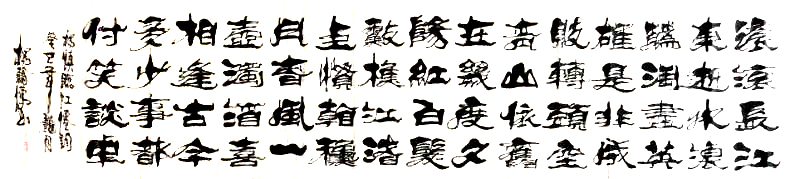 滾滾長江
東逝水浪
花淘盡英
雄是非成
敗轉頭空
青山依舊
在幾度夕
陽紅白髮
漁樵江渚
上慣看秋
月春風一
壺濁酒喜
相逢古今
多少事都
付笑談中
楊慎臨江仙詞
癸巳年